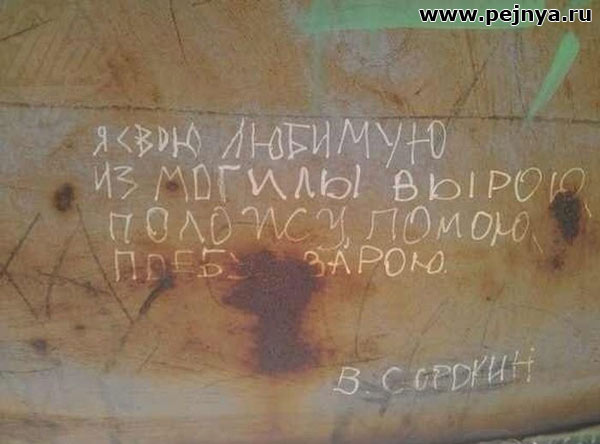 www.pejnya.ru
Я СВОЮ ЛЮБИМУЮ
ИЗ МОГИЛЫ ВЫРОЮ,
ПОЛОЖУ, ПОМОЮ,
ЗАРОЮ.
В. СОРОКИН